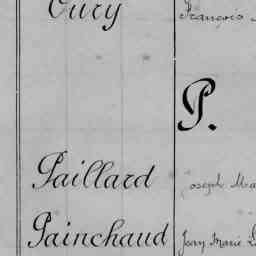 Oury François
P.
Paillard Joseph Ma
Painchaud Jean Marie L